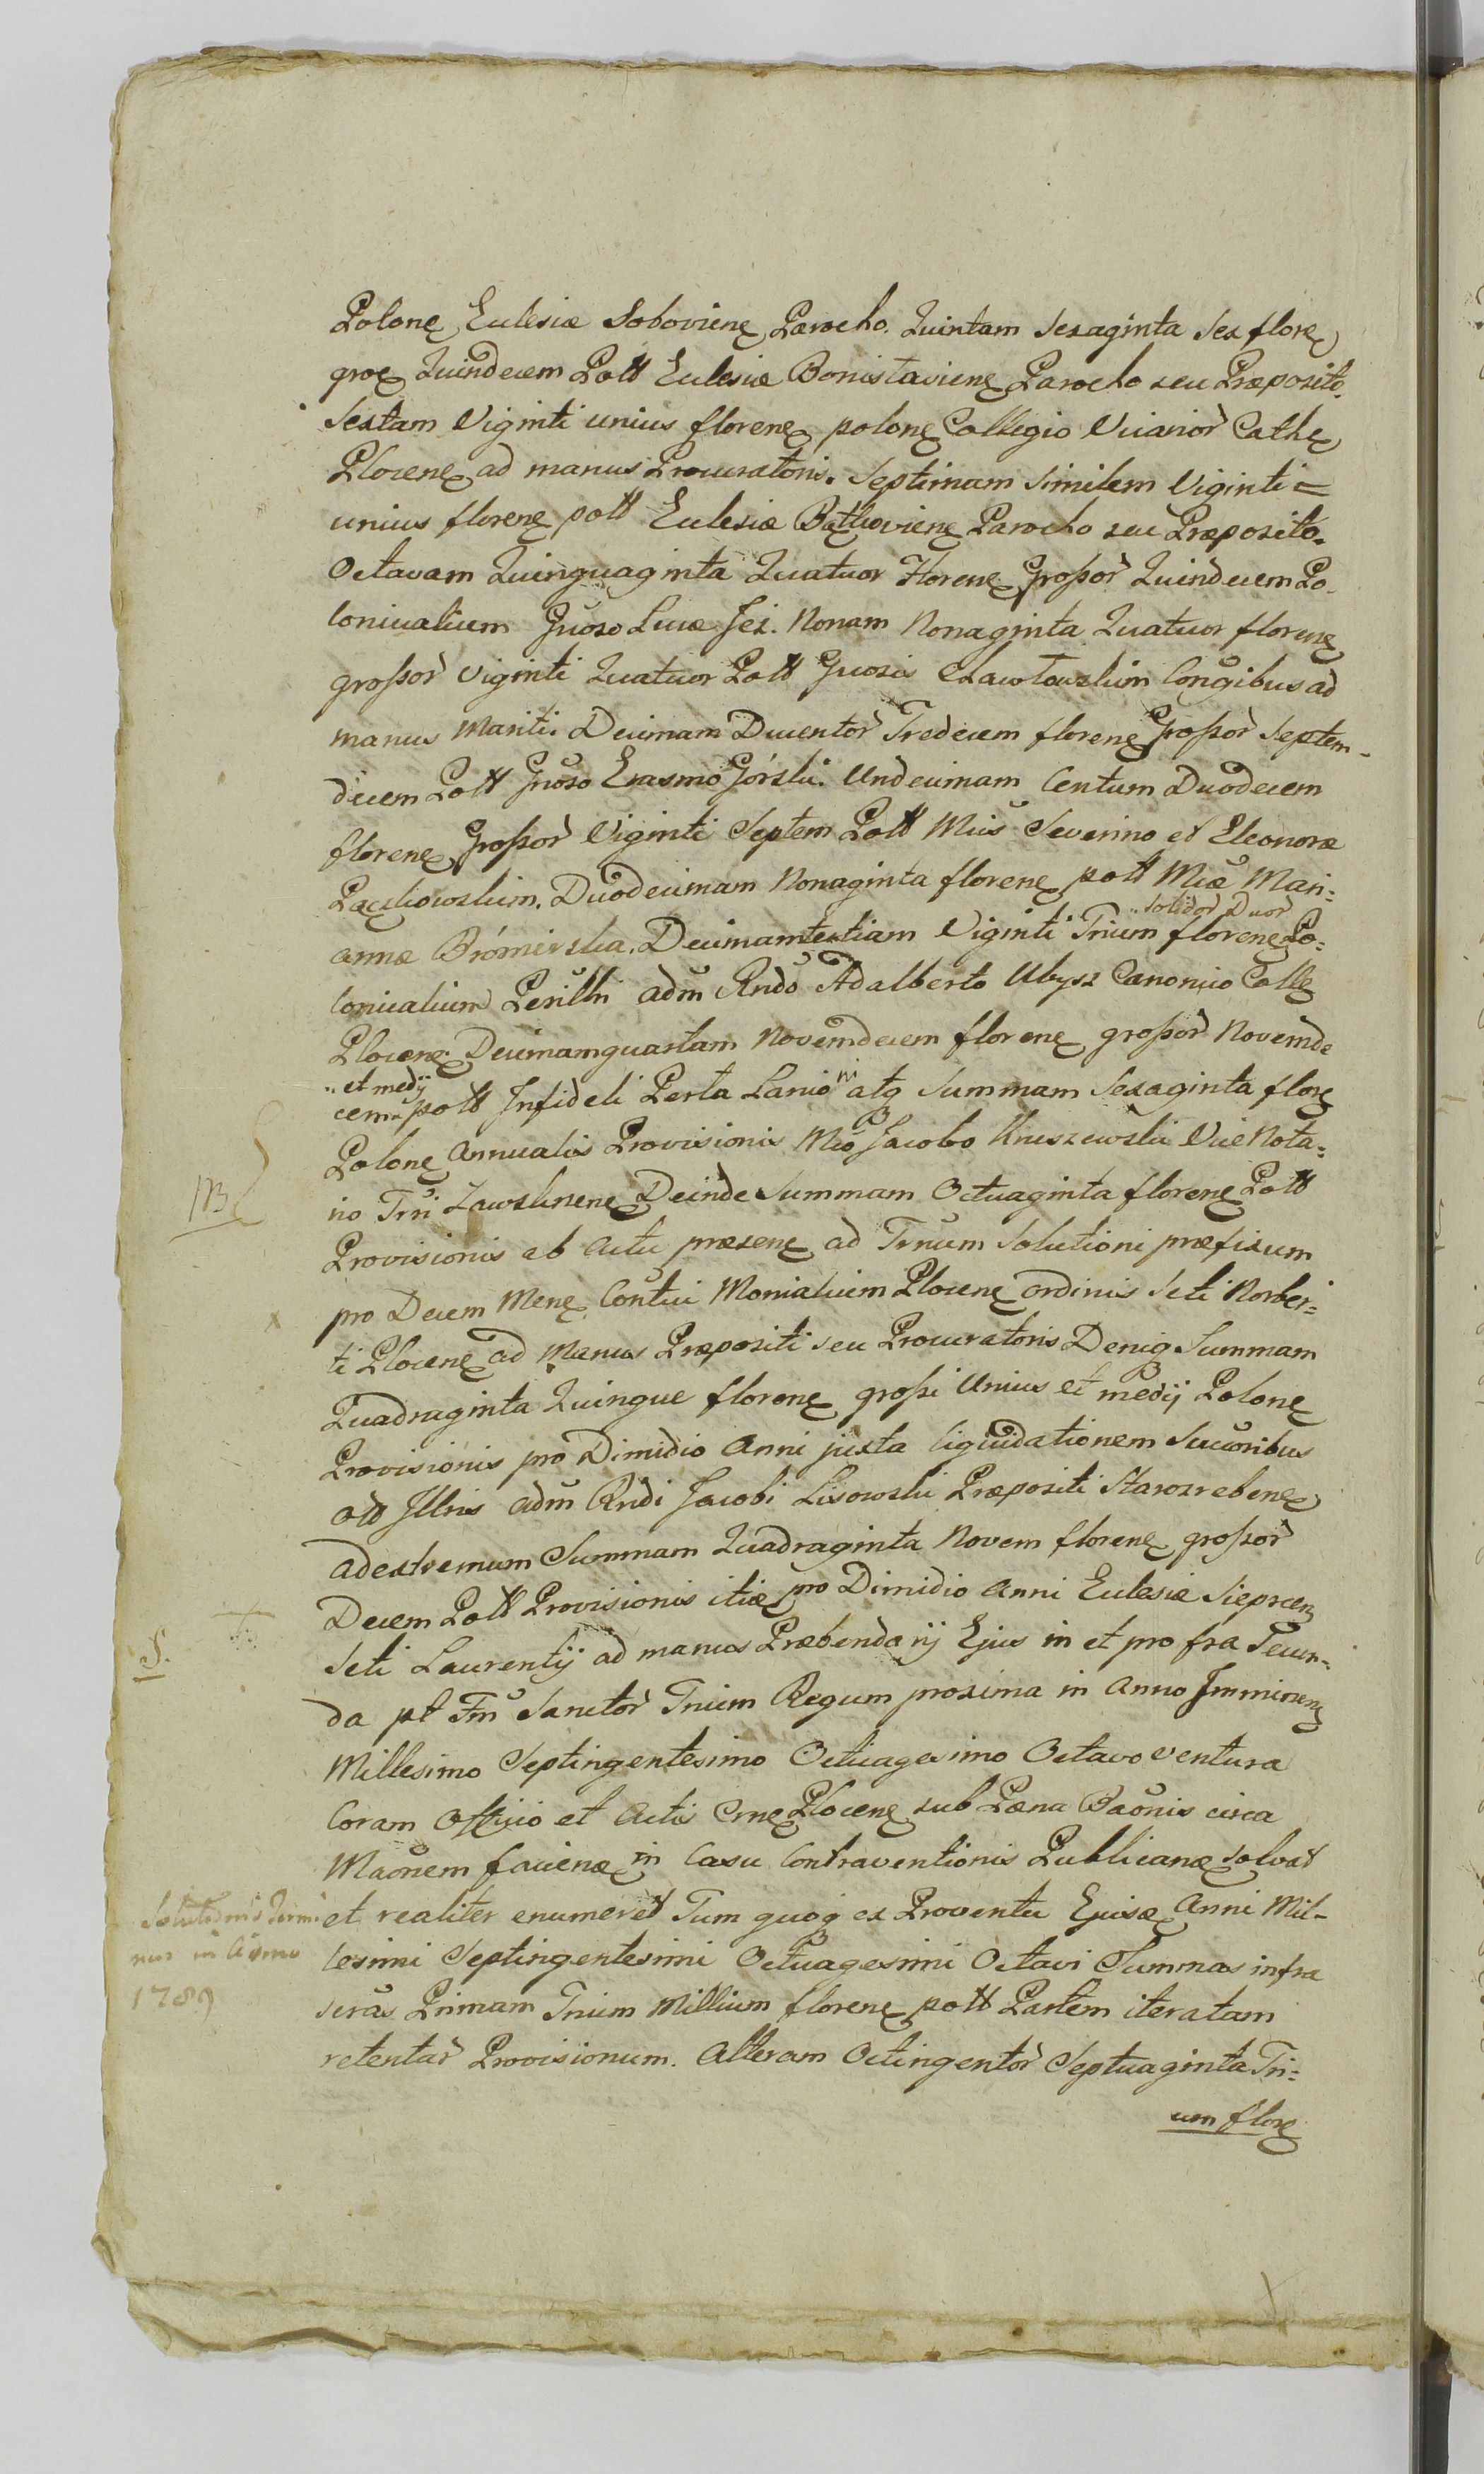 Polonę Eclesiæ Soboviene Parocho. Quintam Sexaginta Sex florę
groę Quindecem Poll Eclesiæ Bonislavienę Parocho seu Præposito.
Sextam Viginti unius florenę polonę Collegio Vicarior Cathę
Plocenę ad manus Procuratoris. Septimam Similem Viginti =
unius florenę poll Eclesiæ Parocho seu Præposito.
Octavam Quinquaginta Quatuor Florenę Großor Quindecem Po-
lonicalium Gnoso Lucæ Jeż. Nonam Nonaginta Quatuor florenę
großor Viginti Quatuor Poll Gnosis Conğibus ad
manus Mariti. Decimam Ducentor Tredecem florenę Großor Septem-
decem Poll Gnoso Erasmo Górski. Undecimam Centum Duodecem
florenę Großor Viginti Septem Poll Mcis Severino et Eleonoræ
Duodecimam Nonaginta florenę poll Mcæ Mari=
annæ Brómirska. Decimamtertiam Viginti Trium florenę Po=
,, Solidor Duor
lonicalium Perilli adm Rndo Adalberto Ubysz Canonico Collę
Plocenę. Decimamquartam Novemdecem florenę großor Novemde
,, et medij
cem poll Infideli Perla Lanioni atq Summam Sexaginta florę
Polonę Annualis Provisionis Mco Jacobo Kruszewski Vice Nota=
NB
rio Trri Zawskrnenę Deinde Summam Octuaginta florenę Poll
Provisionis ab Actu præsenę ad Trnum Solutioni præfixum
pro Decem Menę Contui Monialium Plocenę ordinis Scti Norber=
ti Plocenę ad Manus Præpositi seu Procuratoris Deniq Summam
Quadraginta Quinque florenę großi Unius et medij Polonę
Provisionis pro Dimidio Anni juxta liquidationem Succoribus
olł Illris adm Rndi Jacobi Lisowski Præpositi Starozrebenę
adextremum Summam Quadraginta Novem florenę großor
Decem Poll Provisionis itiæ pro Dimidio Anni Eclesiæ Sieprcenę
S.
Scti Laurentij ad manus Præbendarij Ejus in et pro fra Secun=
da pt Fm Sanctor Trium Regum proxima in Anno Imminenę
Millesimo Septingentesimo Octuagesimo Octavo ventura
Coram Officio et Actis Crnę Plocenę sub Pæna Baonis circa
Maonem facienę in Casu Contraventionis Publicanæ solvat
Solutionis Termi
nus in Anno
1789
et realiter enumeret Tum quoq ex Proventu Ejusæ Anni Mil-
lesimi Septingentesimi Octuagesimi Octavi Summas infra
scras Primam Trium Millium florenę poll Partem iteratam
retentar Provisionum. Alteram Octingentor Septuaginta Tri=
um florę